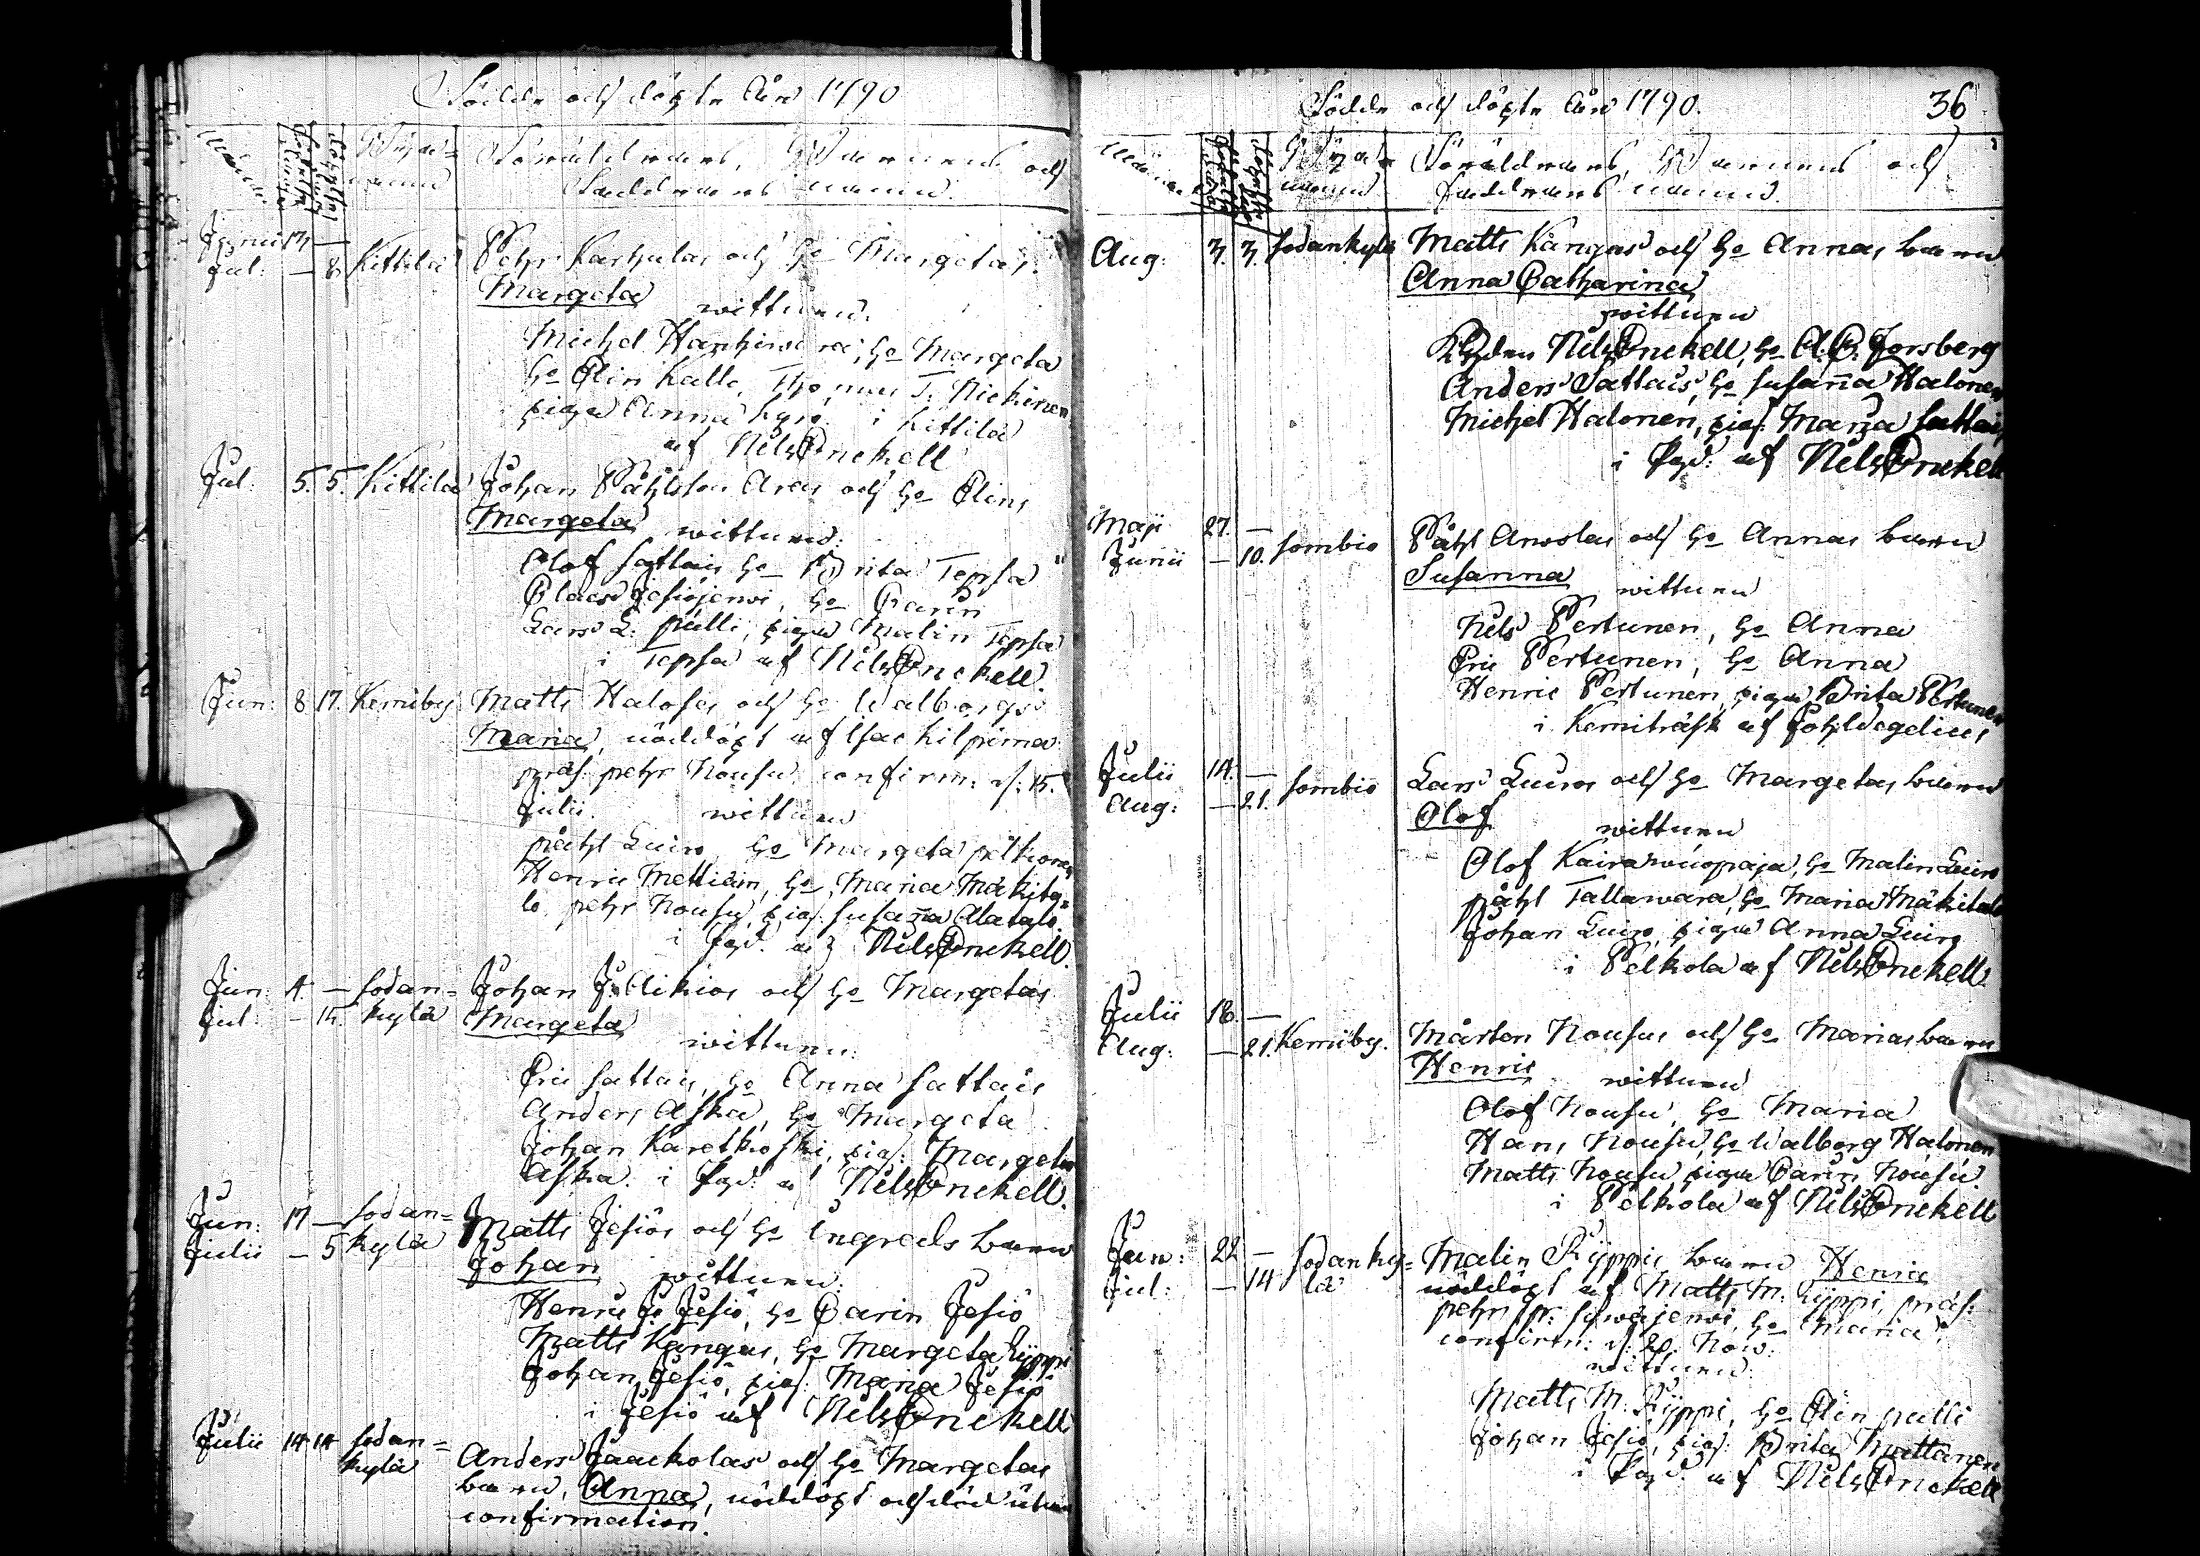 Födde och döpte År 1790
Månad. Födelse Döpelse Byars namn Föräldrars, Barnens och
Faddrars namn.
Junii 17. —
Jul: — 8. Kittilä Pehr Karhulas och h: Margetas
Margeta wittnen.
Michel Hanhiwara, h: Margeta
h: Elin Kalla, Thomas T. Niekinen
piga Anna Kyrö i Kittilä
af Nils Enckell
Jul: 5. 5. Kittilä Johan Påhlson Aras och h: Elins
Margeta wittnen.
Olof Sattais h: Brita Tepsa
Claes Jesiöjerwi, h: Carin
Lars L: Pulli, piga Malin Tepsa
i Tepsa af Nils Enckell.
Jun: 8 17. Kemiby Matts Halosas och h: Walborgs
Maria, nöddöpt af Isac Kilpima
præs: Pehr Nousu, confirm: d: 15.
Julii. wittnen
Påhl Luiro h: Margeta Pelkonen
Henric Mettiäin, h: Maria Mäkita=
lo, Pehr Nousu, pig: Susanna Alatalo
i Pgd: af Nils Enckell.
Jun: 4. — Sodan= Johan J: Aikios och h: Margetas
Jul: — 14. kylä Margeta
wittnen.
Eric Sattais, h: Anna Sattais
Anders Aska, h: Margeta
Johan Karetkoski, pig: Margeta
Aska. i Pgd: af Nils Enckell.
Jun: 17 — Sodan=
Julii — 5 kylä Matts Jesiös och h: Ingreds barn
Johan wittnen.
Henric J: Jesiö, h: Carin Jesiö
Matts Kangas, h: Margeta Ryppi
Johan Jesiö, pig: Maria Jesiö
i Jesiö af Nils Enckell
Julii 14 14 Sodan=
kylä Anders Jaackolas och h: Margetas
barn, Anna, nöddöpt och död utan
confirmation.
Födde och döpte År 1790. 36
Månad Födelse Döpelse Byars namn Föräldrars, Barnens och
Faddrars namn.
Aug: 3. 3. Sodankylä Matts Kangas och h: Annas barn
Anna Catharina
wittnen
Nils Enckell, h: A. C. Forsberg
Anders Sattais, h: Susanna Halonen
Michel Halonen, pig: Maria Sattais
i Pgd: af Nils Enckell
Maji 27. —
Junii — 10. Sombio Påhl Arwolas och h: Annas barn
Susanna wittnen
Nils Pertunen, h: Anna
Eric Pertunen, h: Anna
Henric Pertunen, piga Brita Pertunen
i Kemiträsk af Joh: Wegelius
Julii 14. —
Aug: — 21. Sombio Lars Luiros och h: Margetas barn
Olof wittnen
Olof Kairawuopaja, h: Malin Luiro
Påhl Tallawara, h: Maria Mäkitalo
Johan Luiro, piga Anna Luiro
i Pelkola af Nils Enckell.
Julii 18. —
Aug: — 21. Kemiby. Mårten Nousus och h: Marias barn
Henric wittnen
Olof Nousu, h: Maria
Hans Nousu, h: Walborg Halonen
Matts Nousu, piga Carin Nousu.
i Pelkola af Nils Enckell
Jun: 22 — Sodanky= Malin Ryppis barn Henric
Jul: — 14 lä nöddöpt af Matts M: Ryppi, præs:
Pehr h: Maria,
confirm: d: 20. Nov:
wittnen.
Matts M. Ryppi, h: Elin Pulli
Johan Jesiö, pig: Brita Mattanen
i Pgd: af Nils Enckell